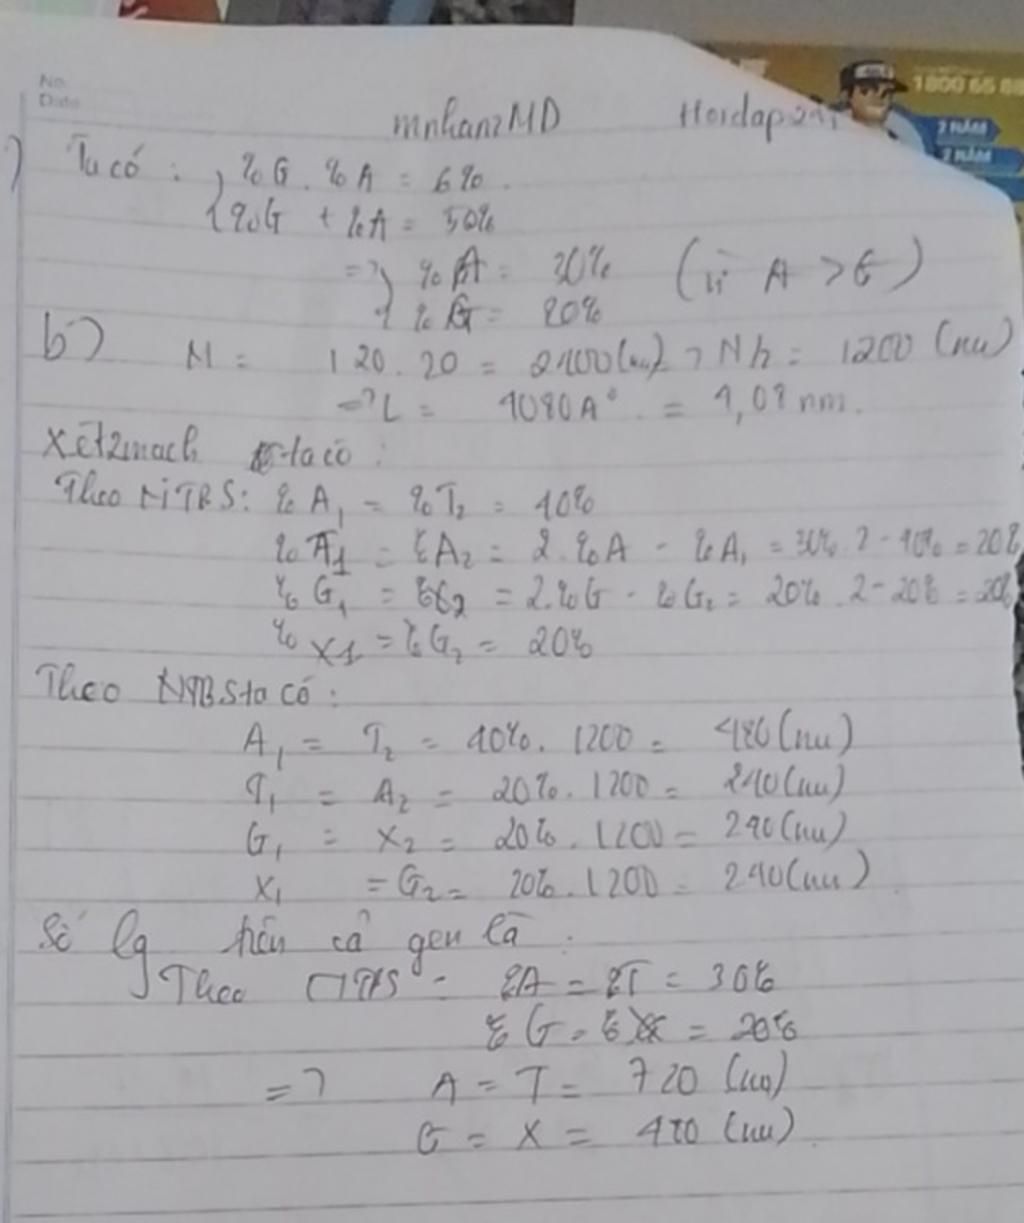 No
Date
mnhanzMD Hoidap247
Ta có : { %G . %A = 6%
%G + %A = 50%
=> { %A = 30% (vì A > G)
%G = 20%
b) N = 120.20 = 2400 (nu) => N/2 = 1200 (nu)
=> L = 4080A° = 4,08 nm.
Xét 2 mạch ta có :
Theo NTBS: %A1 = %T2 = 40%
%T1 = %A2 = 2.%A - %A1 = 30%.2 - 40% = 20%
%G1 = %X2 = 2.%G - %G2 = 20%.2 - 20% = 20%
%X1 = %G2 = 20%
Theo NTBS ta có :
A1 = T2 = 40%.1200 = 480 (nu)
T1 = A2 = 20%.1200 = 240 (nu)
G1 = X2 = 20%.1200 = 240 (nu)
X1 = G2 = 20%.1200 = 240 (nu)
Số lg trên cả gen là :
Theo NTBS : %A = %T = 30%
%G = %X = 20%
=> A = T = 720 (nu)
G = X = 480 (nu)
1800 65 68
2 NĂM
2 NĂM